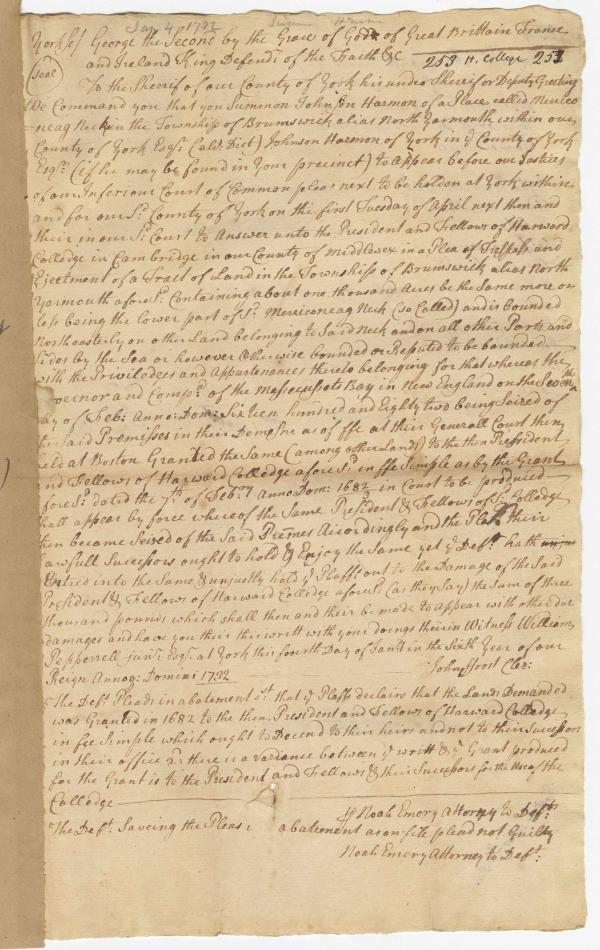 Jan 4, 1732
York ss George the Second by the Grace of God of Great Brittain France
and Ireland King Defendr of the Faith &c 253 H. College 253
Seal
To the Sherrif of our County of York his under Sherrif or Deputy Greeting
We Command you that you Summon Johnson Harmon of a Place called Merico
neag Neck in the Township of Brumswick alias North Yarmouth within our
County of York Esqr. (alias Dict) Johnson Harmon of York in ye County of York
Esqr. (if he may be found in your precinct) to Appear before our Justices
of our Inferiour Court of Common pleas next to be holden at York within
and for our Sd. County of York on the first Tuesday of April next then and
their in our Sd. Court to Answer unto the President and Fellows of Harward
Colledge in Cambredge in our County of Middlesex in a Plea of Trespass and
Ejectment of a Tract of Land in the Township of Brumswick alias North
Yarmouth aforesd. Containing about one thousand Acres be the same more or
less being the lower part of Sd. Merriconeag Neck (so Called) and is bounded
Northeasterly on other Land belonging to Said Neck and on all other Parts and
sides by the Sea or however otherwise bounded or Reputed to be bounded
with the Priviledges and Appurtenances thereto belonging for that whereas the
Governor and Compy. of the Massecussets Bay in New England on the Seventh
day of Feb: Anno: Dom: Sixteen hundred and Eighty two being Seized of
the Said Premisses in their Demesne as of ffe at their Generall Court then
held at Boston Granted the Same (among other Lands) to the then President
and Fellows of Harward Colledge aforesd. in ffe Simple as by the Grant
aforesd. dated the 7th. of Febry Anno Dom: 1682/3 in Court to be produced
shall appear by force whereof the Same President & Fellows of Sd. Colledge
then became Seized of the Said Premes Accordingly and the Plffs their
Lawfull Successors ought to hold & Enjoy the Same yet ye Deft. hath unjus
Entred into the Same & unjustly hold ye Plaffs. out to the Damage of the Said
President & Fellows of Harward Colledge aforesd. (as they Say) the Sum of three
thousand pounds which shall then and their be made to appear with other due
damages and have you their this writt with your doings therein Witness William
Pepperrell junr. Esqr. at York this fourth Day of Janry in the Sixth Year of our
Reign Annoq: Domini 1732
John Frost Cler:
The Deft. Pleads in abatement 1st that ye Plaff declairs that the Lands Demanded
was Granted in 1682 to the then President and Fellows of Harward Colledge
in fee Simple which ought to Decend to their heirs and not to their Successors
in their office 2: there is a variance between ye writt & ye Grant produced
for the Grant is to the President and Fellows & their Successors for the Use of the
Colledge
Noah Emery Attorney to Deft:
The Deft. Saveing the Pleas abatement as on file plead not Guilty
Noah Emery Attorney to Deft: